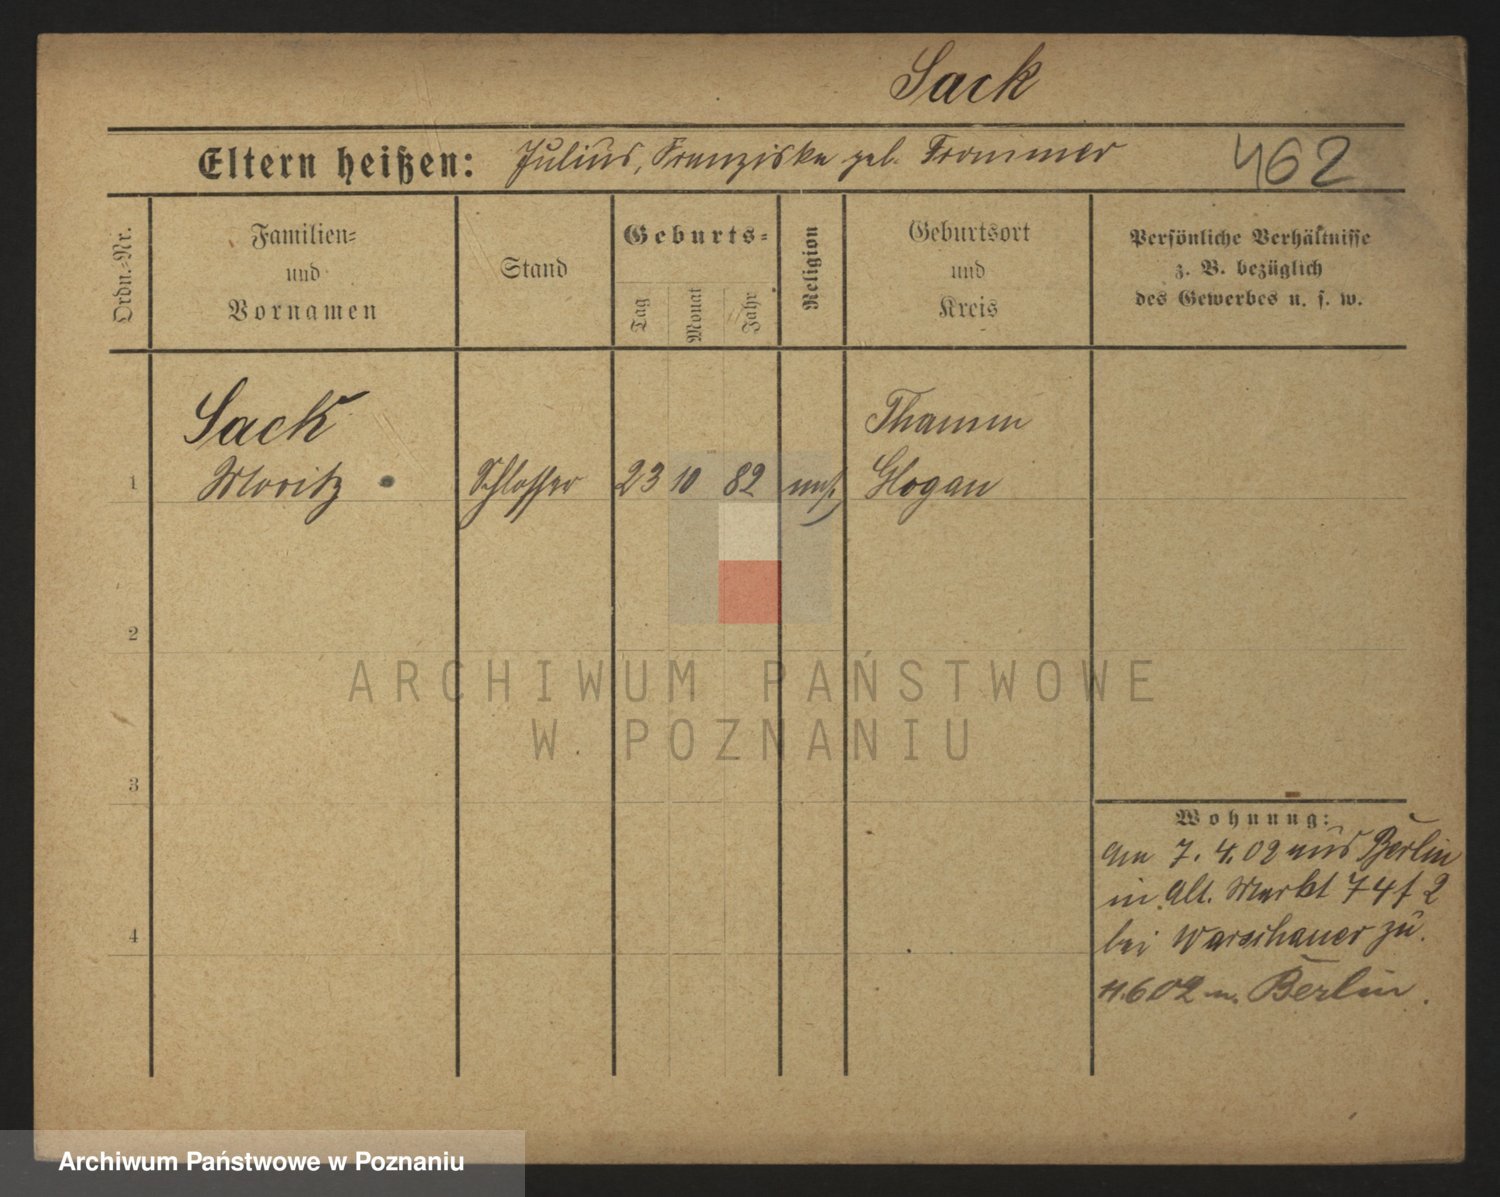 Sack
Eltern heißen: Julius, Franziska geb. Frommer 462
Ordn.-Nr.
Familien-
und
Vornamen
Stand
Geburts-
Tag
Monat
Jahr
Religion
Geburtsort
und
Kreis
Persönliche Verhältnisse
z. B. bezüglich
des Gewerbes u. s. w.
Sack
Thamm
1 Moritz Schlosser 23 10 82 mos. Glogau
2
3
4
Wohnung:
am 7. 4. 02 aus Berlin
in Alt. Markt 74
bei Warschauer zu.
602 n. Berlin.
ARCHIWUM PAŃSTWOWE
W POZNANIU
Archiwum Państwowe w Poznaniu